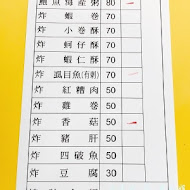 鮑魚海產粥 80
炸蝦卷 70
炸小卷酥 70
炸蚵仔酥 70
炸蝦仁酥 70
炸虱目魚(有刺) 70
炸紅糟肉 50
炸雞卷 50
炸香菇 50
炸豬肝 50
炸四破魚 50
炸豆腐 30